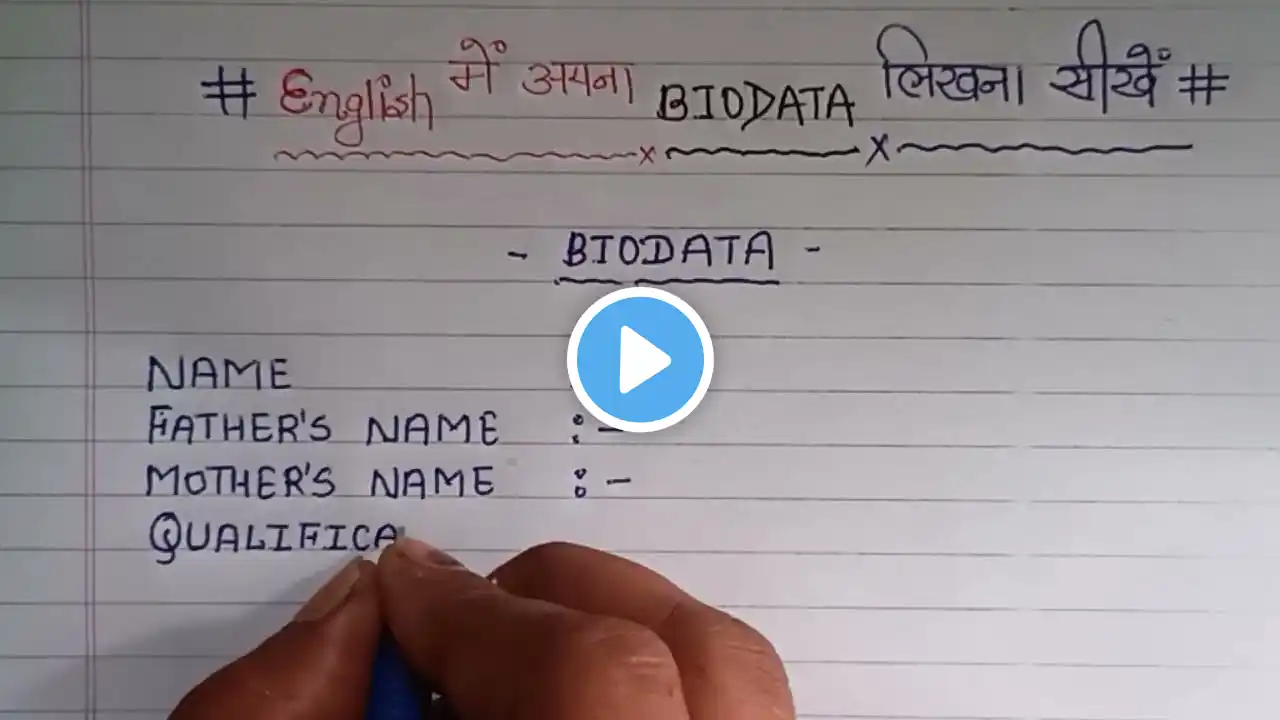 # English में अपना BIODATA लिखना सीखें #
- BIODATA -
NAME
FATHER'S NAME :-
MOTHER'S NAME :-
QUALIFICA